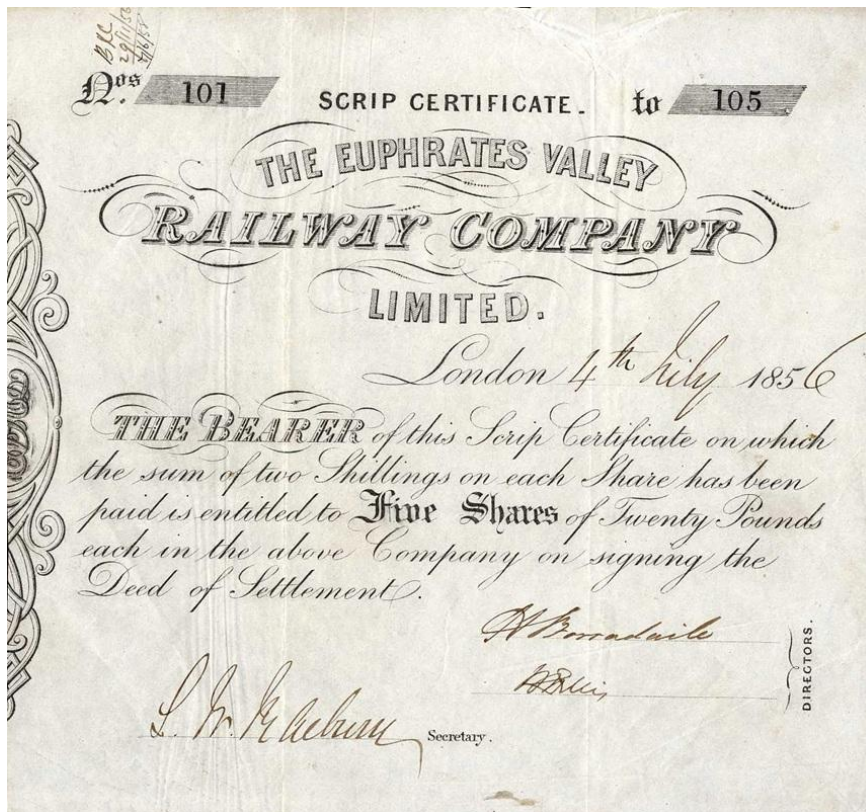 Nos. 101 SCRIP CERTIFICATE. to 105
THE EUPHRATES VALLEY
RAILWAY COMPANY
LIMITED.
London 4th July 1856
THE BEARER of this Scrip Certificate on which
the sum of two Shillings on each Share has been
paid is entitled to Five Shares of Twenty Pounds
each in the above Company on signing the
Deed of Settlement.
H Borradaile
DIRECTORS.
Secretary.